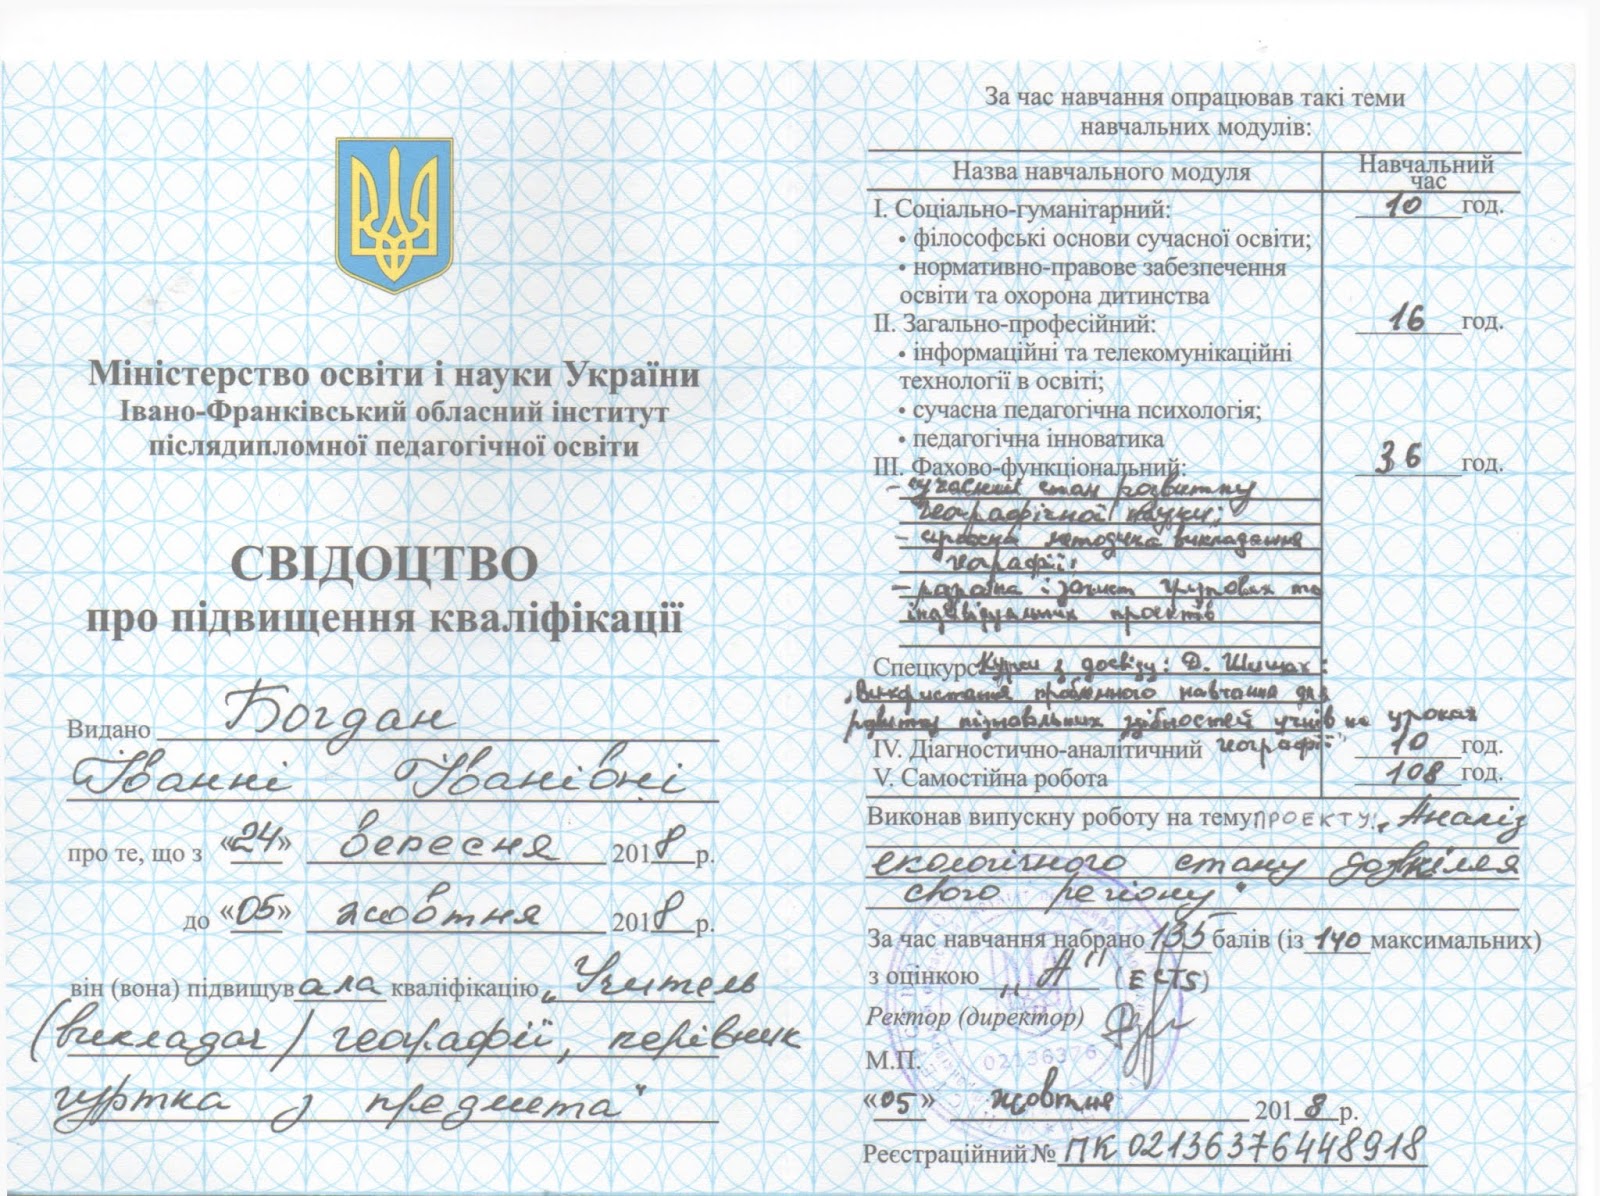 Міністерство освіти і науки України
Івано-Франківський обласний інститут
післядипломної педагогічної освіти
СВІДОЦТВО
про підвищення кваліфікації
Видано Богдан
Іванні Іванівні
про те, що з «24» вересня 2018 р.
до «05» жовтня 2018 р.
він (вона) підвищувала кваліфікацію „Учитель
(викладач) географії, керівник
гуртка з предмета"
За час навчання опрацював такі теми
навчальних модулів:
Назва навчального модуля
Навчальний
час
І. Соціально-гуманітарний: 10 год.
• філософські основи сучасної освіти;
• нормативно-правове забезпечення
освіти та охорона дитинства
ІІ. Загально-професійний: 16 год.
• інформаційні та телекомунікаційні
технології в освіті;
• сучасна педагогічна психологія;
• педагогічна інноватика
ІІІ. Фахово-функціональний: 36 год.
- сучасний стан розвитку
географічної науки;
- сучасна методика викладання
географії;
- і захист групових та
індивідуальних проєктів
Спецкурс з досвіду: Д. :
„Використання проблемного навчання для
розвитку пізнавальних здібностей учнів на уроках
географії"
IV. Діагностично-аналітичний 10 год.
V. Самостійна робота 108 год.
Виконав випускну роботу на тему ПРОЕКТУ: „Аналіз
екологічного стану довкілля
свого регіону"
За час навчання набрано 135 балів (із 140 максимальних)
з оцінкою „А" (ECTS)
Ректор (директор)
М.П.
02136376
«05» жовтня 2018 р.
Реєстраційний № ПК 02136376448918